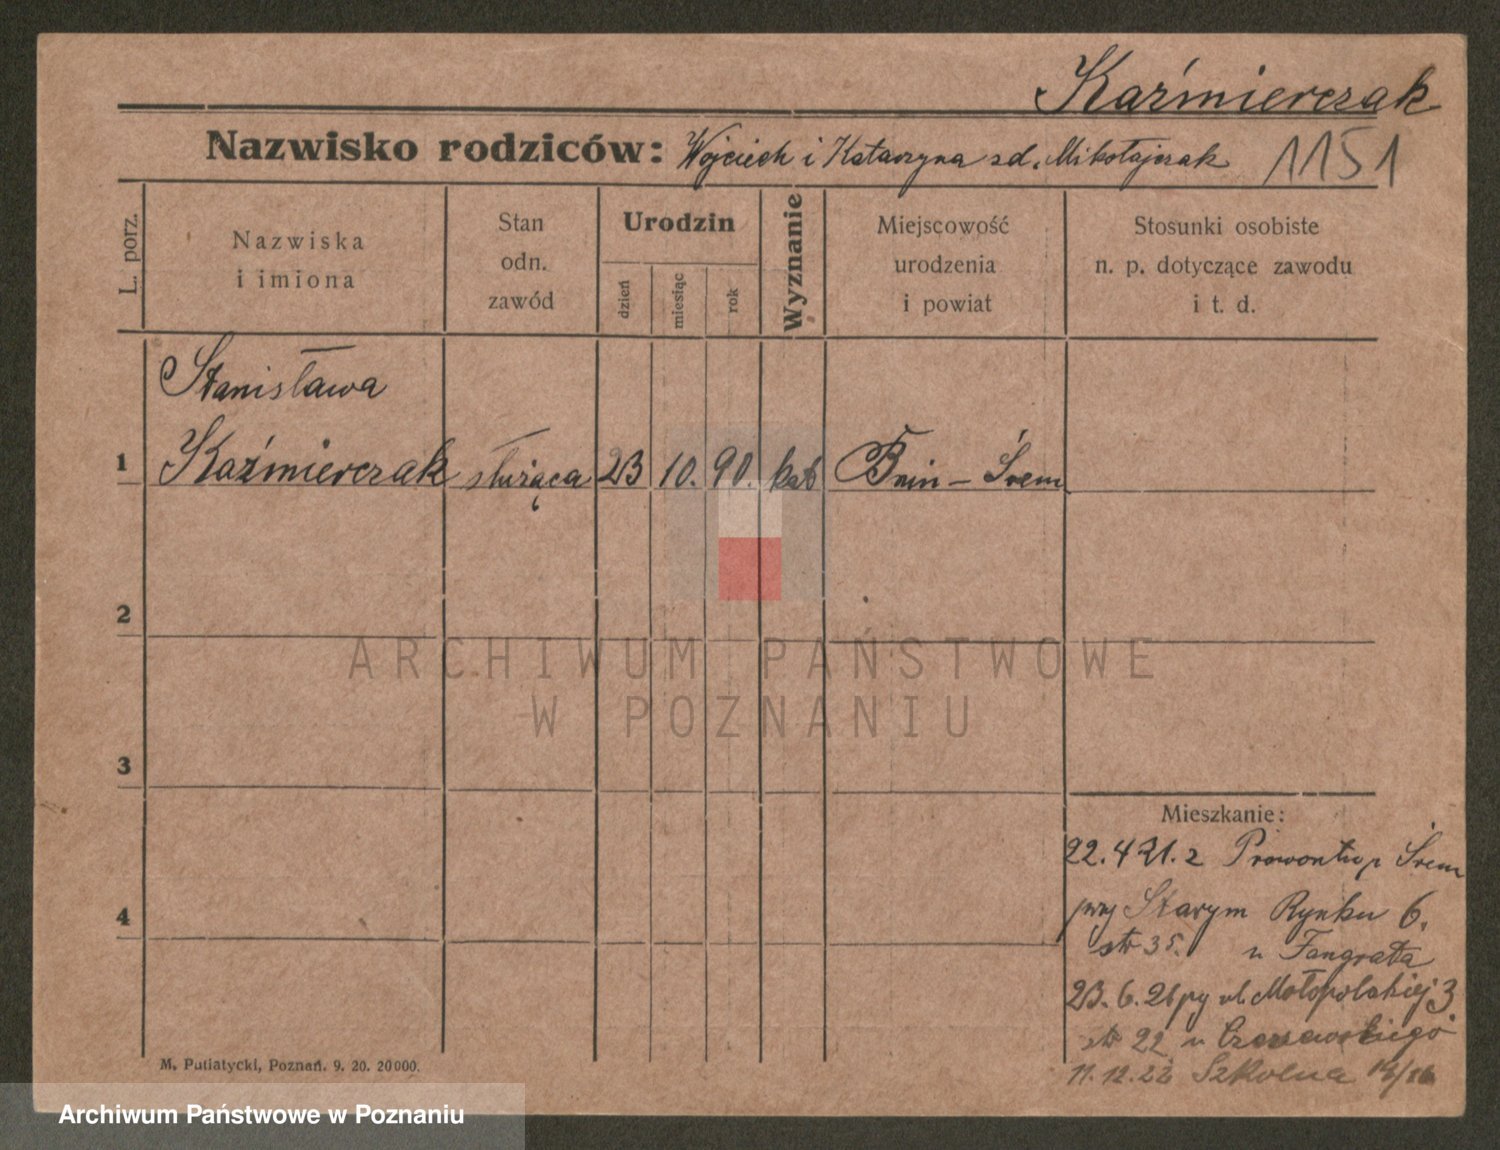 Kaźmierczak
Nazwisko rodziców: Wojciech i Katarzyna zd. Mikołajczak 1151
L. porz.
Nazwiska
i imiona
Stan
odn.
zawód
Urodzin
dzień
miesiąc
rok
Wyznanie
Miejscowość
urodzenia
i powiat
Stosunki osobiste
n. p. dotyczące zawodu
i t. d.
Stanisława
1 Kaźmierczak służąca 23 10. 90. kat Bnin - Śrem
2
ARCHIWUM PAŃSTWOWE
W POZNANIU
3
Mieszkanie:
22.4 21. z p Śrem
przy Starym Rynku 6.
4
str 35. u Fangrata
23. 6. 21 py ul. Małopolskiej 3
str 22 u
11. 12. 22 Szkolna
M. Putiatycki, Poznań. 9. 20. 20000.
Archiwum Państwowe w Poznaniu